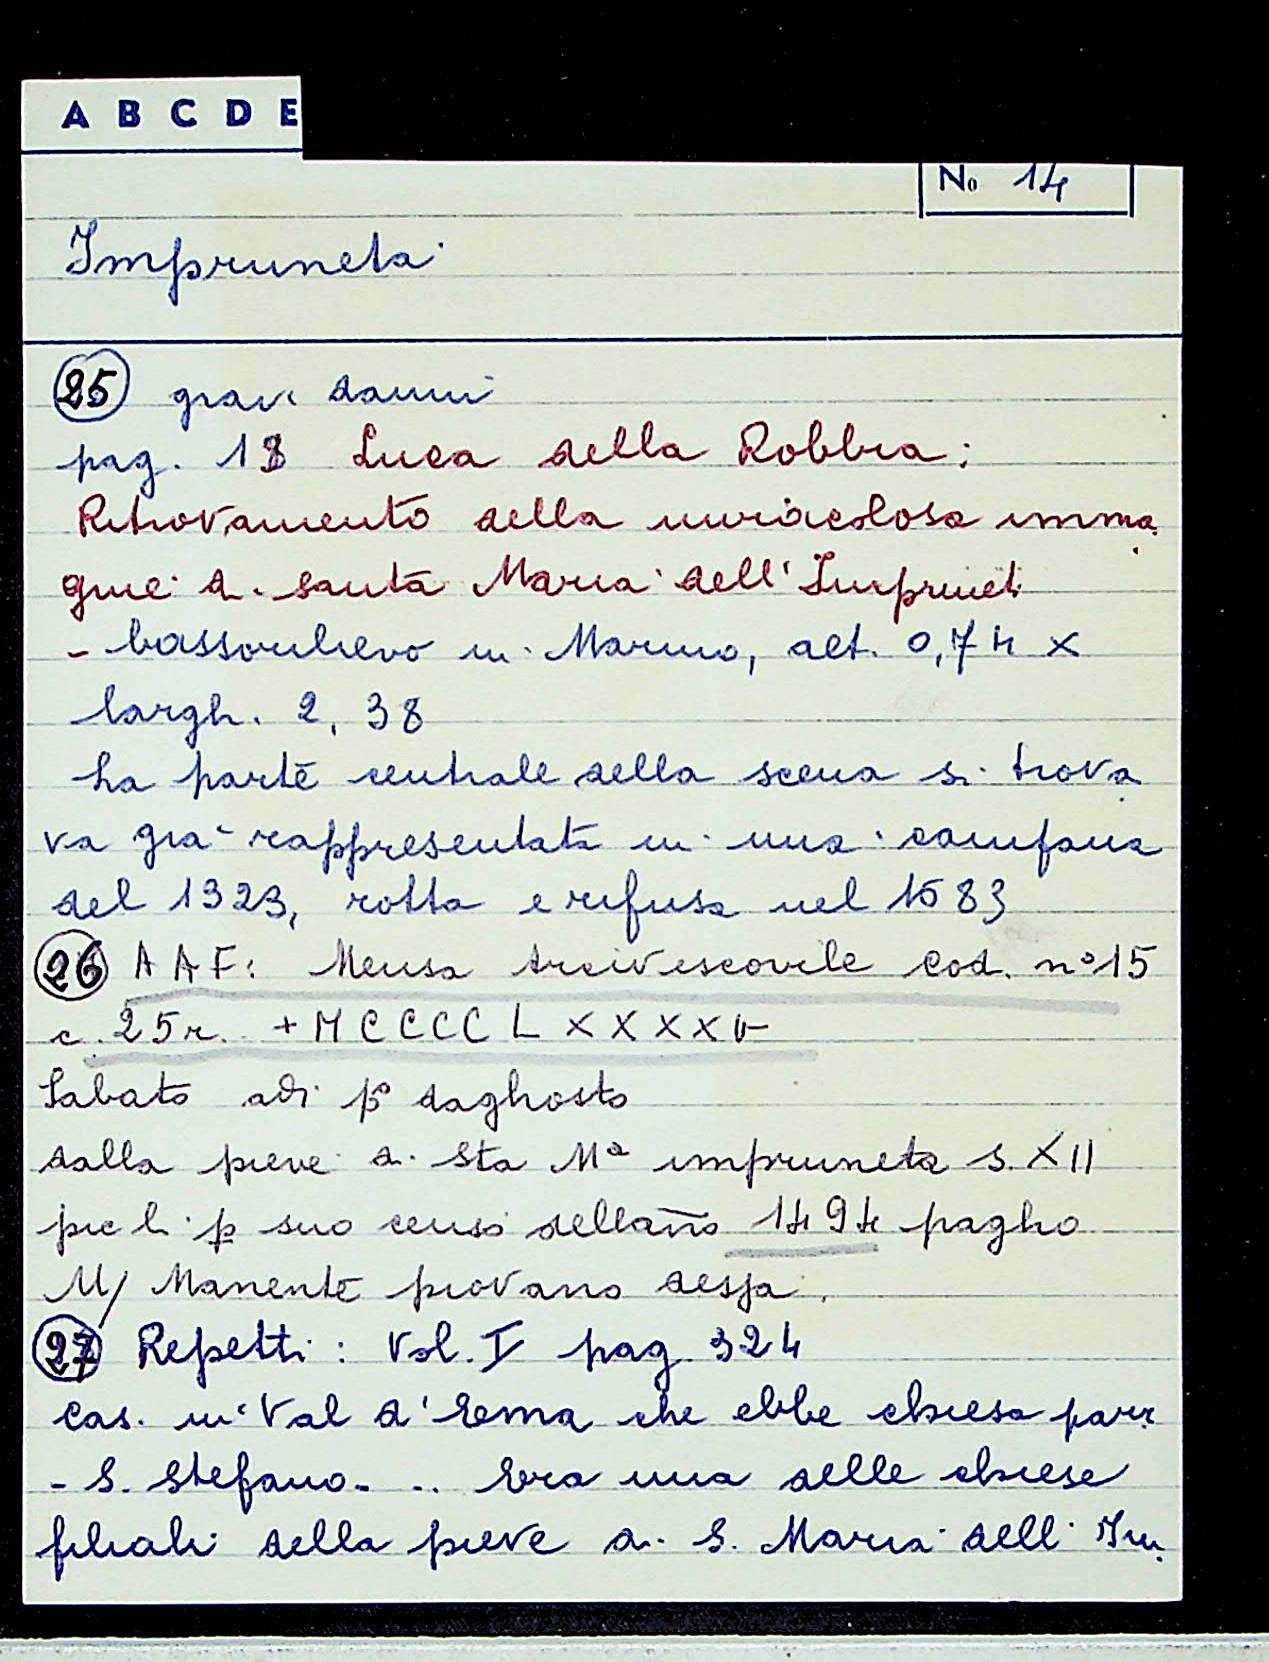 A B C D E
No 14
Impruneta
25 gravi danni
pag. 18 Luca della Robbia:
Ritrovamento della miracolosa imma
gine di santa Maria dell'Imprunet
- bassorilievo in Marmo, alt. 0,74 x
largh. 2,38
La parte centrale della scena si trova
va già rappresentata in una campana
del 1323, rotta e rifusa nel 1583
26 AAF: Mensa Arcivescovile Cod. n° 15
c. 25r. + MCCCCLXXXXV
Sabato adi p° daghosto
dalla pieve di Sta Mª impruneta s. XII
pic li p suo censo dellaño 1494 pagho
M/ Manente piovano dessa
27 Repetti: Vol. I pag. 324
Cas. in Val d'Ema che ebbe chiesa parr
- S. Stefano - .. Era una delle chiese
filiali della pieve di S. Maria dell'Im